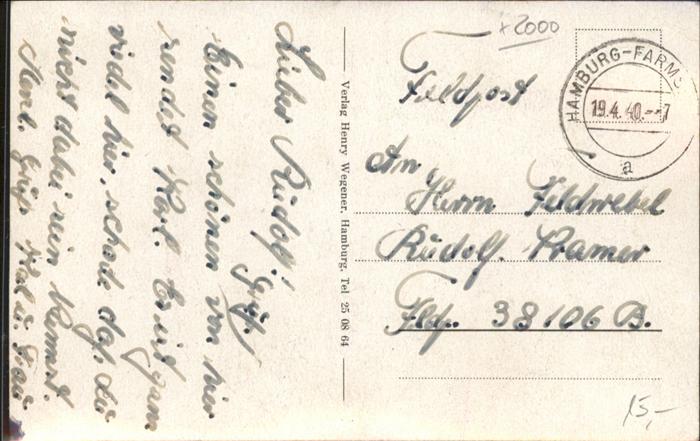 Lieber Rudolf!
Einen schönen von hier
sendet Karl. Es ist
viel hier, schade daß du
nicht dabei sein kannst.
Gruß Karl u. Frau
Verlag Henry Wegener, Hamburg, Tel 25 08 64
+2000
HAMBURG-FARMS
19.4.40.-7
a
Feldpost
An
Herrn Feldwebel
Rudolf. Kramer
Fldp. 38106 B.
15,-